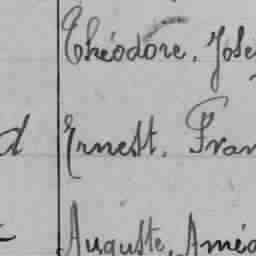 Théodore, Jose
d Ernest, Fran
Auguste, Améd